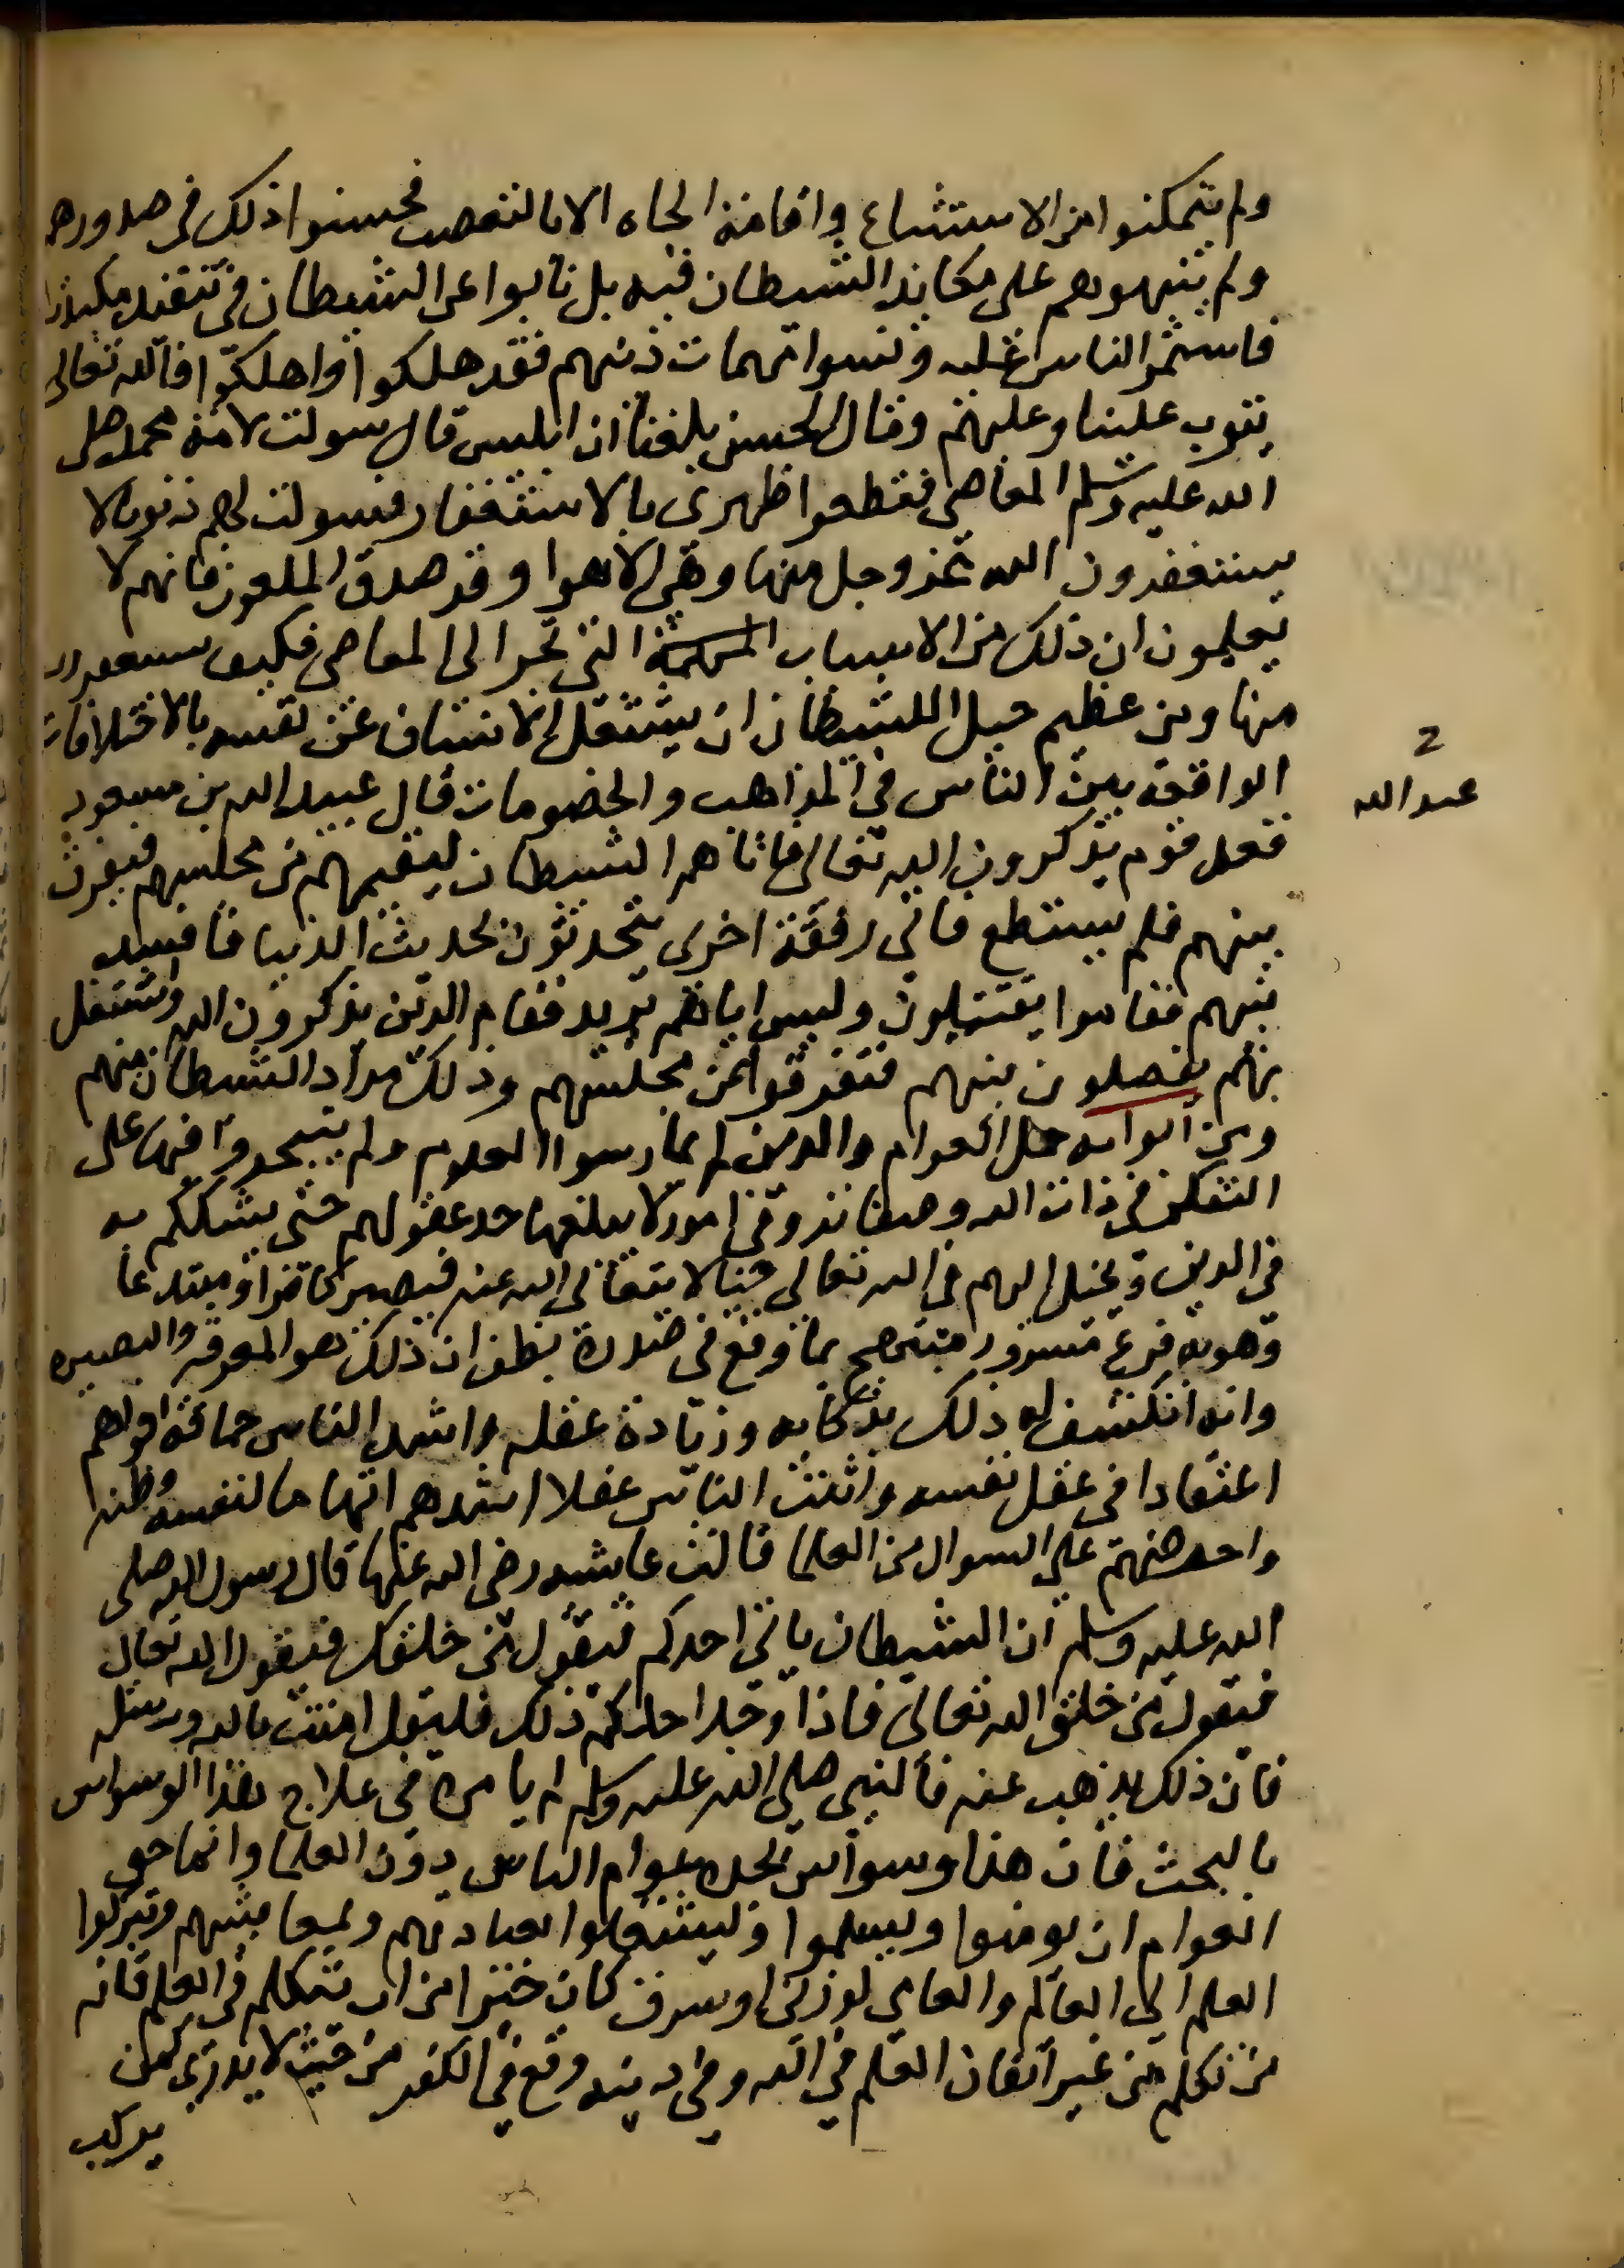 ولم يتمكنوا من الاستتباع واقامة الجاه الا بالتعصب فحبسوا ذلك في صدورهم
ولم ينبهوهم على مكايد الشيطان فيه بل نابوا عن الشيطان في تنفيذ مكيدته
فاستمر الناس عليه ونسوا امهات دينهم فقد هلكوا واهلكوا فالله تعالى
يتوب علينا وعليهم وقال الحسن بلغنا ان ابليس قال سولت لامة محمد صلى
الله عليه وسلم المعاصي فقطعوا ظهري بالاستغفار فسولت لهم ذنوبا لا
يستغفرون الله عز وجل منها وهي الاهوا وقد صدق الملعون فانهم لا
يعلمون ان ذلك من الاسباب التي تجر الى المعاصي فكيف يستغفرون
منها ومن عظيم حيل الشيطان ان يشتغل الانسان عن نفسه بالاختلافات
الواقعة بين الناس في المذاهب والخصومات قال عبيد الله بن مسعود
عبد الله
قعد قوم يذكرون الله تعالى فاتاهم الشيطان ليقيمهم من مجلسهم فيفرق
بينهم فلم يستطع فاتى رفقة اخرى يتحدثون بحديث الدنيا فافسد
بينهم فقاموا يقتتلون وليس اياهم يريد فقام الذين يذكرون الله واشتغل
بهم يفصلون بينهم فتفرقوا عن مجلسهم وذلك مراد الشيطان منهم
ومن ابوابه حمل العوام والذين لم يمارسوا العلوم ولم يتبحروا فيها على
التفكر في ذات الله وصفاته وفي امور لا يبلغها حد عقولهم حتى يشككهم به
في الدين ويخيل اليهم في الله تعالى خيالا يتعالى الله عنه فيصير كافرا او مبتدعا
وهو به فرح مسرور مبتهج بما وقع في صدره يظن ان ذلك هو المعرفة والبصيرة
وانه انكشف له ذلك بذكائه وزيادة عقله واشد الناس حماقة اقواهم
اعتقادا في عقل نفسه واثبت الناس عقلا اشدهم اتهاما لنفسه وظنه
واحرصهم على السوال من العلما قالت عايشه رضي الله عنها قال رسول الله صلى
الله عليه وسلم ان الشيطان ياتي احدكم فيقول من خلقك فيقول الله تعالى
فيقول من خلق الله تعالى فاذا وجد احدكم ذلك فليقل امنت بالله ورسله
فان ذلك يذهب عنه فالنبي صلى الله عليه وسلم لم يامره في علاج هذا الوسواس
بالبحث فان هذا وسواس يجده عوام الناس دون العلما وانما حق
العوام ان يومنوا ويسلموا ويشتغلوا بعبادتهم ولمعايشهم ويتركوا
العلم الى العالم والعامي لو زنى او سرق كان خيرا من ان يتكلم في العلم فانه
من تكلم من غير اتقان العلم في الله وفي دينه وقع في الكفر من حيث لا يدري كمن
يركب